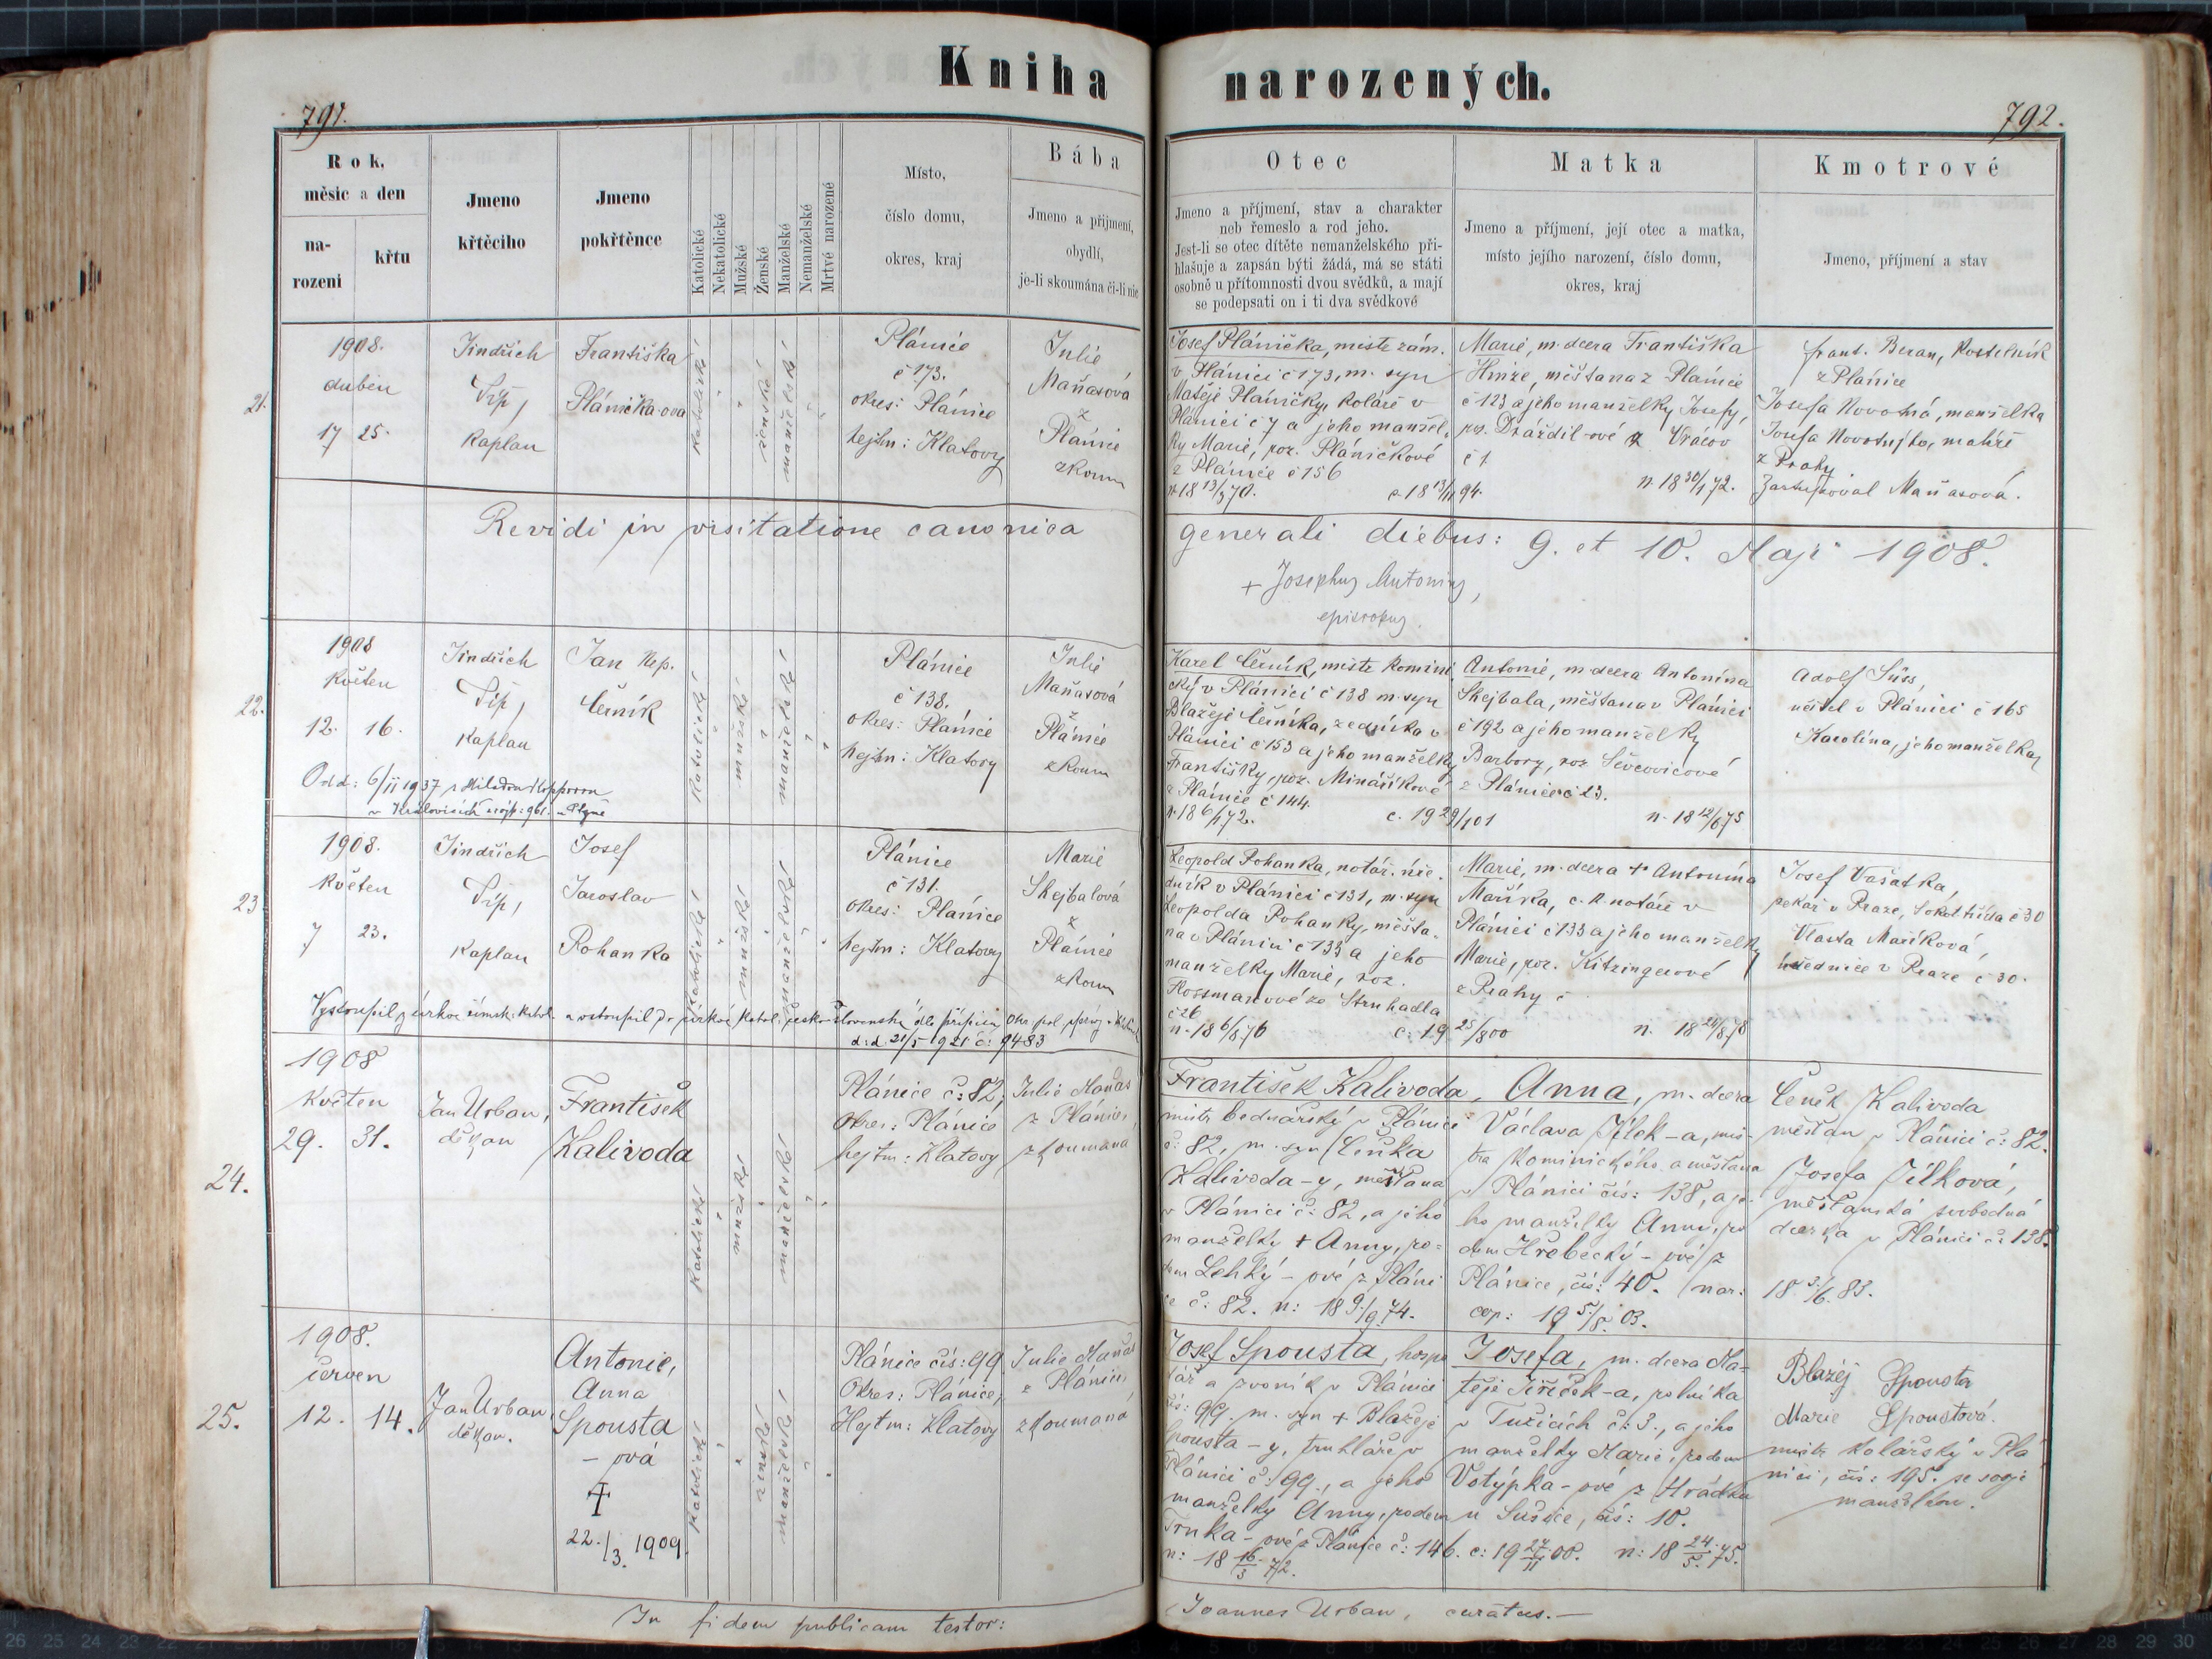 Kniha narozených.
791.
792.
Rok, měsíc a den
na-
rození
křtu
Jmeno
křtěcího
Jmeno
pokřtěnce
Katolické
Nekatolické
Mužské
Ženské
Manželské
Nemanželské
Mrtvě narozené
Místo,
číslo domu,
okres, kraj
Bába
Jmeno a přijmení,
obydlí,
je-li skoumána či-li nic
Otec
Jmeno a příjmení, stav a charakter
neb řemeslo a rod jeho.
Jest-li se otec dítěte nemanželského při-
hlašuje a zapsán býti žádá, má se státi
osobně u přítomnosti dvou svědků, a mají
se podepsati on i ti dva svědkové
Matka
Jmeno a příjmení, její otec a matka,
místo jejího narození, číslo domu,
okres, kraj
Kmotrové
Jmeno, příjmení a stav
21.
1908.
duben
17 25.
Jindřich
Kaplan
Františka
Plánička-ova
katolické
ženské
manželské
Plánice
č 173.
okres: Plánice
hejtm: Klatovy
Julie
Maňasová
z
Plánice
zkoum
Josef Plánička, mistr zám.
v Plánici č 173, m. syn
Matěje Pláničky, koláře v
Plánici č 7 a jeho manžel.
ky Marie, roz. Pláničkové
z Plánice č 156
n. 18 13/3 70. c. 18 13/11 94.
Marie, m. dcera Františka
Hinze, měšťana z Plánice
č 123 a jeho manželky Josefy,
roz. Dráždil-ové z Vrácov
č 1.
n. 18 30/1 72.
Frant. Beran, kostelník
z Plánice
Josefa Novotná, manželka
Josefa Novotného, malíř
z Prahy.
Zastupoval Maňasová.
Revidi in visitatione canonica generali diebus: 9. et 10. Maji 1908.
+ Josephus Antonius,
episcopus.
22.
1908
Květen
12. 16.
Jindřich
Kaplan
Jan Nep.
Černík
katolické
mužské
manželské
Plánice
č 138.
okres: Plánice
hejtm: Klatovy
Julie
Maňasová
z
Plánice
zkoum
Karel Černík, mistr komini
cký v Plánici č 138 m. syn
Blažeje Černíka, zedníka v
Plánici č 153 a jeho manželky
Františky, roz. Minaříkové
z Plánice č 144.
n. 18 6/1 72. c. 19 29/1 01
Antonie, m dcera Antonína
Skejbala, měšťana v Plánici
č 192 a jeho manželky
Barbory, roz Ševcovicové
z Plánice č 23.
n. 18 12/6 75
Adolf Süss,
učitel v Plánici č 165
Karolína, jeho manželka
Odd: 6/II 1937 s Miladou
v Kralovicích
23
1908.
Květen
7 23.
Jindřich
Kaplan
Josef
Jaroslav
Pohanka
katolické
mužské
manželské
Plánice
č 131.
okres: Plánice
hejtm: Klatovy
Marie
Skejbalová
z
Plánice
zkoum
Leopold Pohanka, notář. úře.
dník v Plánici č 131, m. syn
Leopolda Pohanky, měšťa.
na v Plánici č 133 a jeho
manželky Marie, roz.
Hossmanové ze Struhadla
č 26
n. 18 6/8 76 c. 19 25/8 00
Marie, m. dcera + Antonína
Maříka, c. k. notáře v
Plánici č 133 a jeho manželky
Marie, roz. Kitzingerové
z Prahy č
n. 18 24/8 78
Josef Vašatka,
pekař v Praze, Sokol. třída č 30
Vlasta Maříková,
úřednice v Praze č 30.
Vystoupil z církve římsk. katol. a vstoupil do církve katol. česko-slovenské dle přípisu Okr. pol. správy
d: d 21/5 1921 č: 9483
24.
1908
Květen
29. 31.
Jan Urban,
děkan
František
Kalivoda
katolické
mužské
manželské
Plánice č: 82,
Okres: Plánice
hejtm: Klatovy
Julie Maňas
z Plánice,
zkoumana
František Kalivoda,
mistr bednářský v Plánici
č: 82, m. syn Čeňka
Kalivoda-y, měšťana
v Plánici č: 82, a jeho
manželky + Anny, ro-
dem Lehký-ové z Pláni
ce č: 82. n: 18 9/9. 74.
Anna, m. dcera
Václava Jílek-a, mis-
tra kominického a měšťana
v Plánici čís: 138, a je-
ho manželky Anny, ro
dem Hřebecký-ové z
Plánice, čís: 40. (nar: 18 3/6. 83.
cop: 19 5/5. 03.
Čeněk Kalivoda
měšťan v Plánici č: 82.
Josefa Jílková,
měšťanská svobodná
dcerka v Plánici č: 138.
25.
1908.
Červen
12. 14.
Jan Urban,
děkan.
Antonie,
Anna
Spousta
- ová
+
22./3. 1909.
katolické
ženské
manželské
Plánice čís: 99
Okres: Plánice,
Hejtm: Klatovy
Julie Maňas
z Plánice,
zkoumaná
Josef Spousta, hospo
dář a zvoník v Plánici
čís: 99. m. syn + Blažeje
Spousta-y, truhláře v
Plánici č: 99., a jeho
manželky Anny, rodem
Trnka-ové z Plánice č: 146. c: 19 27/II 00.
n: 18 16/3 72.
Josefa, m. dcera Ma-
těje Jiříček-a, rolníka
v Tužicích č: 3., a jeho
manželky Marie, rodem
Votýpka-ové z Hrádku
u Sušice, čís: 10.
n: 18 24/5. 75.
Blažej Spousta
Marie Spoustová.
mistr kolářský v Plá
nici, čís: 195. se svojí
manželkou.
In fidem publicam testor: Joannes Urban, curatus.